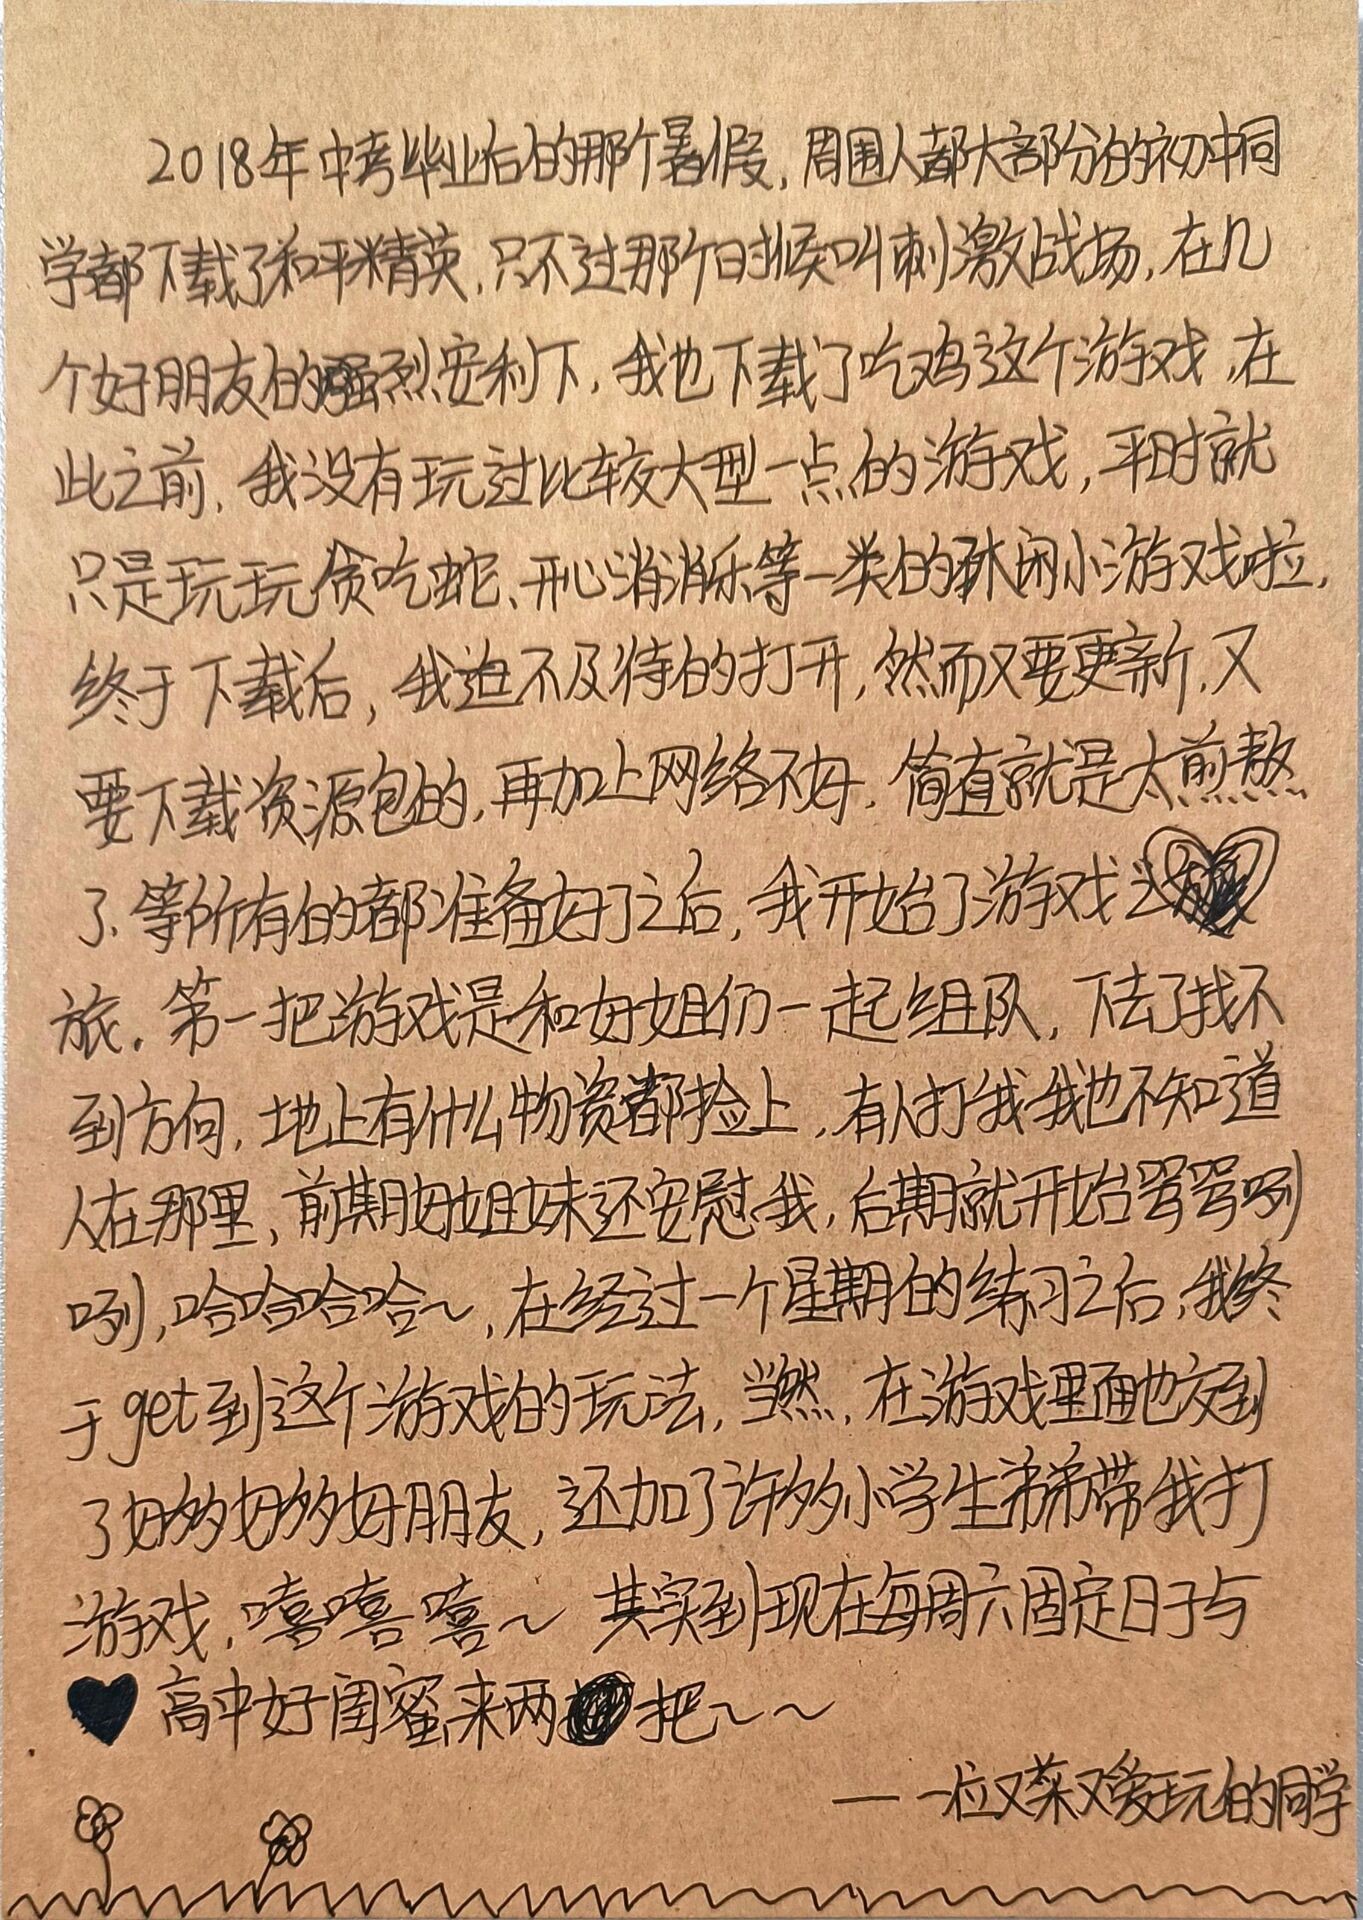 2018年中考毕业后的那个暑假，周围人都大部分的初中同
学都下载了和平精英，只不过那个时候叫刺激战场，在几
个好朋友的强烈安利下，我也下载了吃鸡这个游戏，在
此之前，我没有玩过比较大型一点的游戏，平时就
只是玩玩贪吃蛇、开心消消乐等一类的休闲小游戏啦，
终于下载后，我迫不及待的打开，然而又要更新，又
要下载资源包的，再加上网络不好，简直就是太煎熬
了．等所有的都准备好了之后，我开始了游戏之
旅．第一把游戏是和好姐们一起组队，下去了找不
到方向，地上有什么物资都捡上，有人打我我也不知道
人在那里，前期好姐妹还安慰我，后期就开始骂骂咧
咧，哈哈哈哈～，在经过一个星期的练习之后，我终
于get到这个游戏的玩法，当然，在游戏里面也交到
了好多好多好朋友，还加了许多小学生弟弟带我打
游戏，嘻嘻嘻～ 其实到现在每周六固定日子与
高中好闺蜜来两把～～
——一位又菜又爱玩的同学